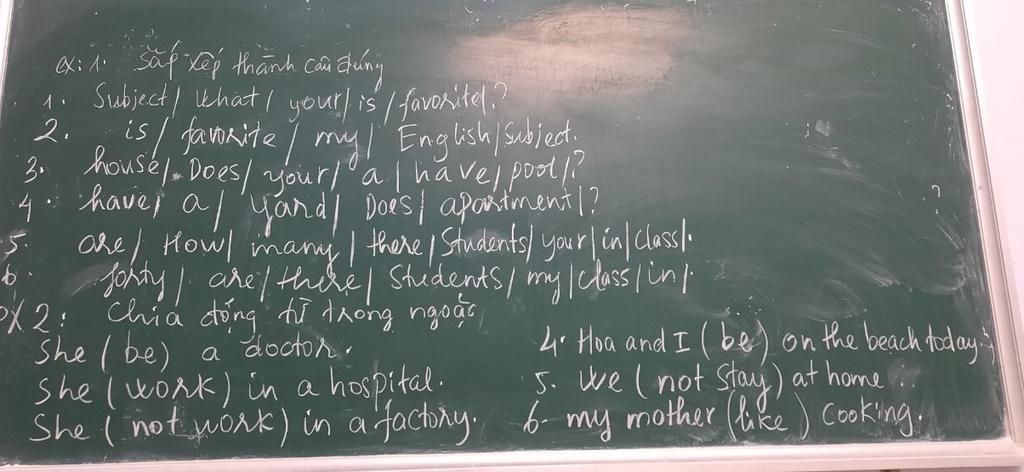 ex: 1. Sắp xếp thành câu đúng
1. Subject / What / your / is / favorite / ?
2. is / favorite / my / English / subject.
3. house / Does / your / a / have / pool / ?
4. have / a / yard / Does / apartment / ?
5. are / How / many / there / Students / your / in / class / .
6 forty / are / there / Students / my / class / in / .
ex 2: Chia động từ trong ngoặc
She (be) a doctor.
She (work) in a hospital.
She (not work) in a factory.
4. Hoa and I (be) on the beach today.
5. We (not stay) at home.
6- my mother (like) cooking.